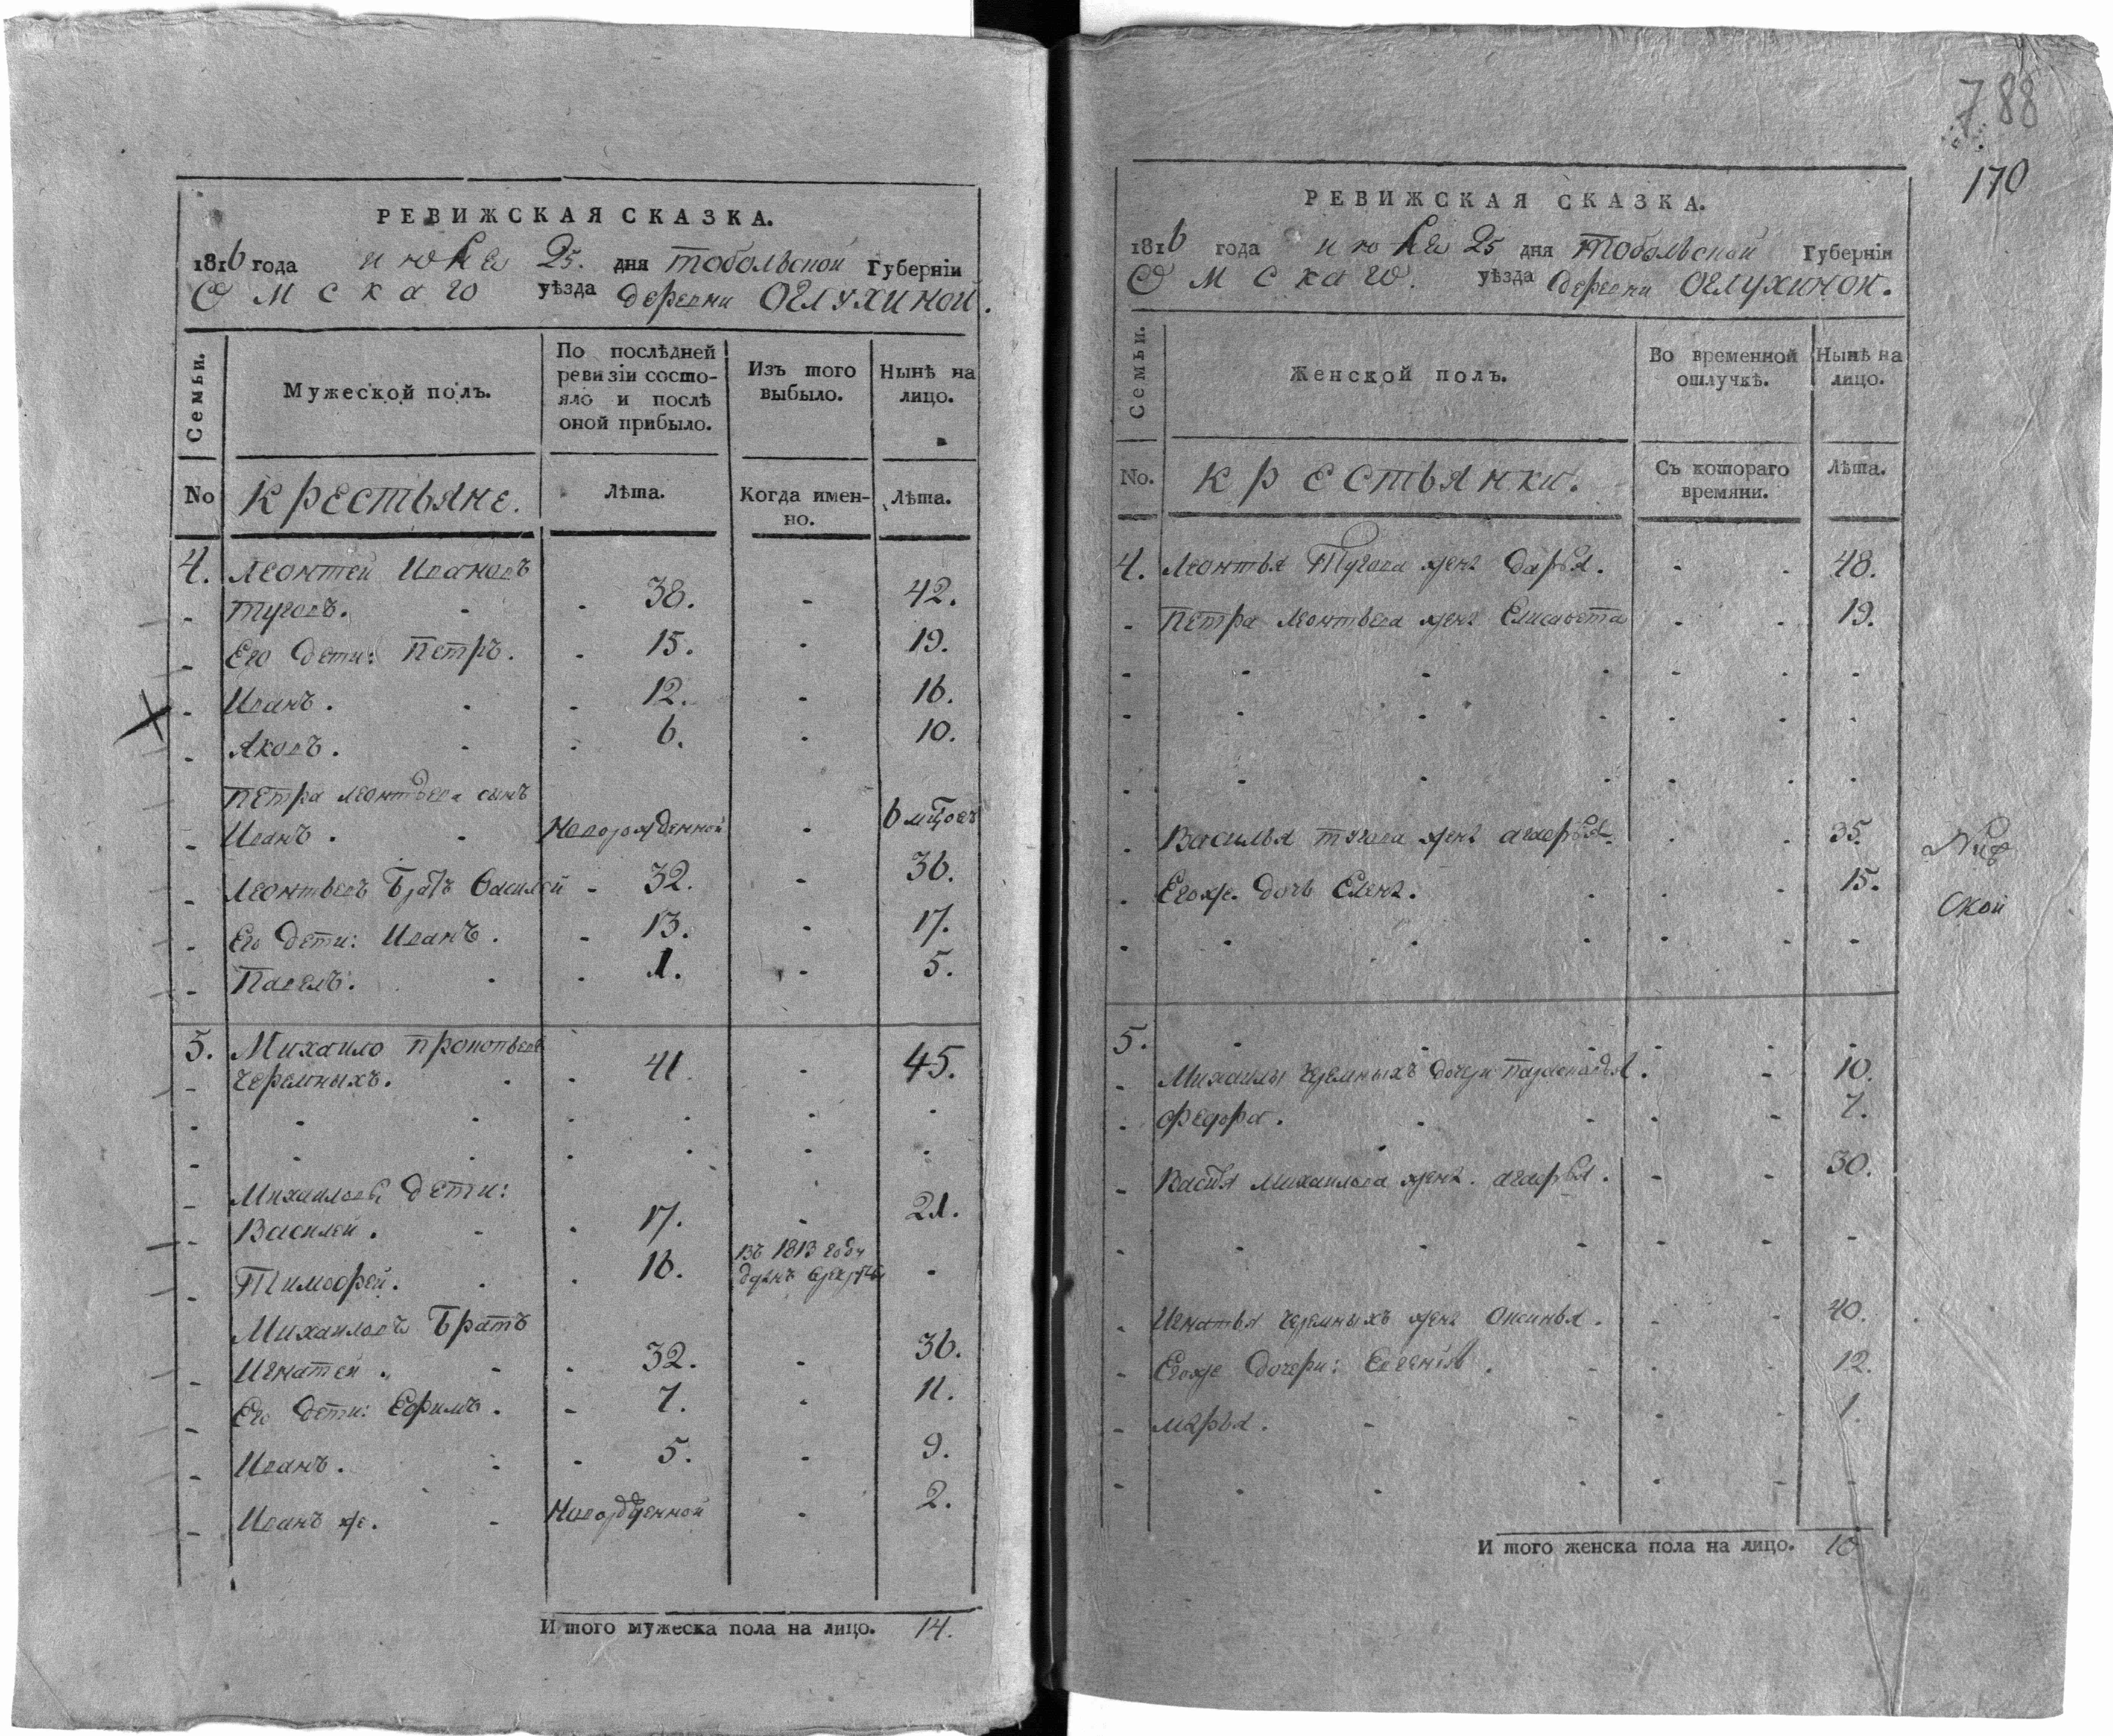 РЕВИЖСКАЯ СКАЗКА.
1816 года июня 25. дня Тобольской Губерніи
Омскаго уѣзда деревни Оглухиной.
Семьи.
Мужеской полъ.
По послѣдней
ревизіи состо-
яло и послѣ
оной прибыло.
Изъ того
выбыло.
Нынѣ на
лицо.
No
Крестьяне.
Лѣта.
Когда имен-
но.
Лѣта.
4. Леонтей Ивановъ
Туговъ. 38. 42.
Его дети: Петръ. 15. 19.
Иванъ. 12. 16.
Яковъ. 6. 10.
Петра Леонтьева сынъ
Иванъ. Новорожденной 6 мцовъ
Леонтьевъ братъ Василей 32. 36.
Его дети: Иванъ. 13. 17.
Павелъ. 1. 5.
5. Михаило Прокопьевъ
Черемныхъ. 41 45.
Михаиловы дети:
Василей. 17. 21.
Тимофей. 16. въ 1813 году
Михаиловъ братъ
Игнатей. 32. 36.
Его дети: Ефимъ. 7. 11.
Иванъ. 5. 9.
Иванъ же. Новорожденной 2.
И того мужеска пола на лицо. 14.
788
170
РЕВИЖСКАЯ СКАЗКА.
1816 года июня 25 дня Тобольской Губерніи
Омскаго. уѣзда деревни Оглухиной.
Семьи.
Женской полъ.
Во временной
отлучкѣ.
Нынѣ на
лицо.
No.
Крестьянки.
Съ котораго
времяни.
Лѣта.
4. Леонтья Тугова жена Дарья. 48.
Петра Леонтьева жена Елисавета 19.
Василья Тугова жена Агафья. 35.
Егоже дочь Елена. 15.
ской
5.
Михаилы Черемныхъ дочери Парасковья. 10.
Федора. 7.
Васья Михаилова жена Агафья. 30.
Игнатья Черемныхъ жена Оксинья. 40.
Егоже дочери: Евгенія. 12.
Марья. 1.
И того женска пола на лицо. 10